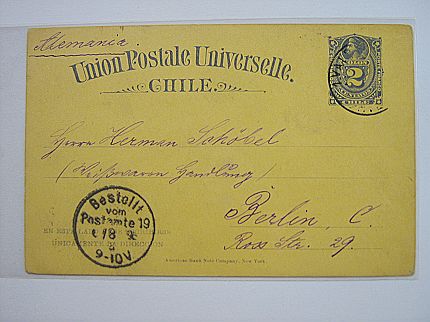 Alemania.
Union Postale Universelle.
CHILE.
2
Herrn Herman Schöbel
(Weißwaren Handlung)
Berlin, C.
Ross Str. 29.
Bestellt
vom
Postamte 19
9-10V
UNICAMENTE LA DIRECCION
American Bank Note Company, New York.